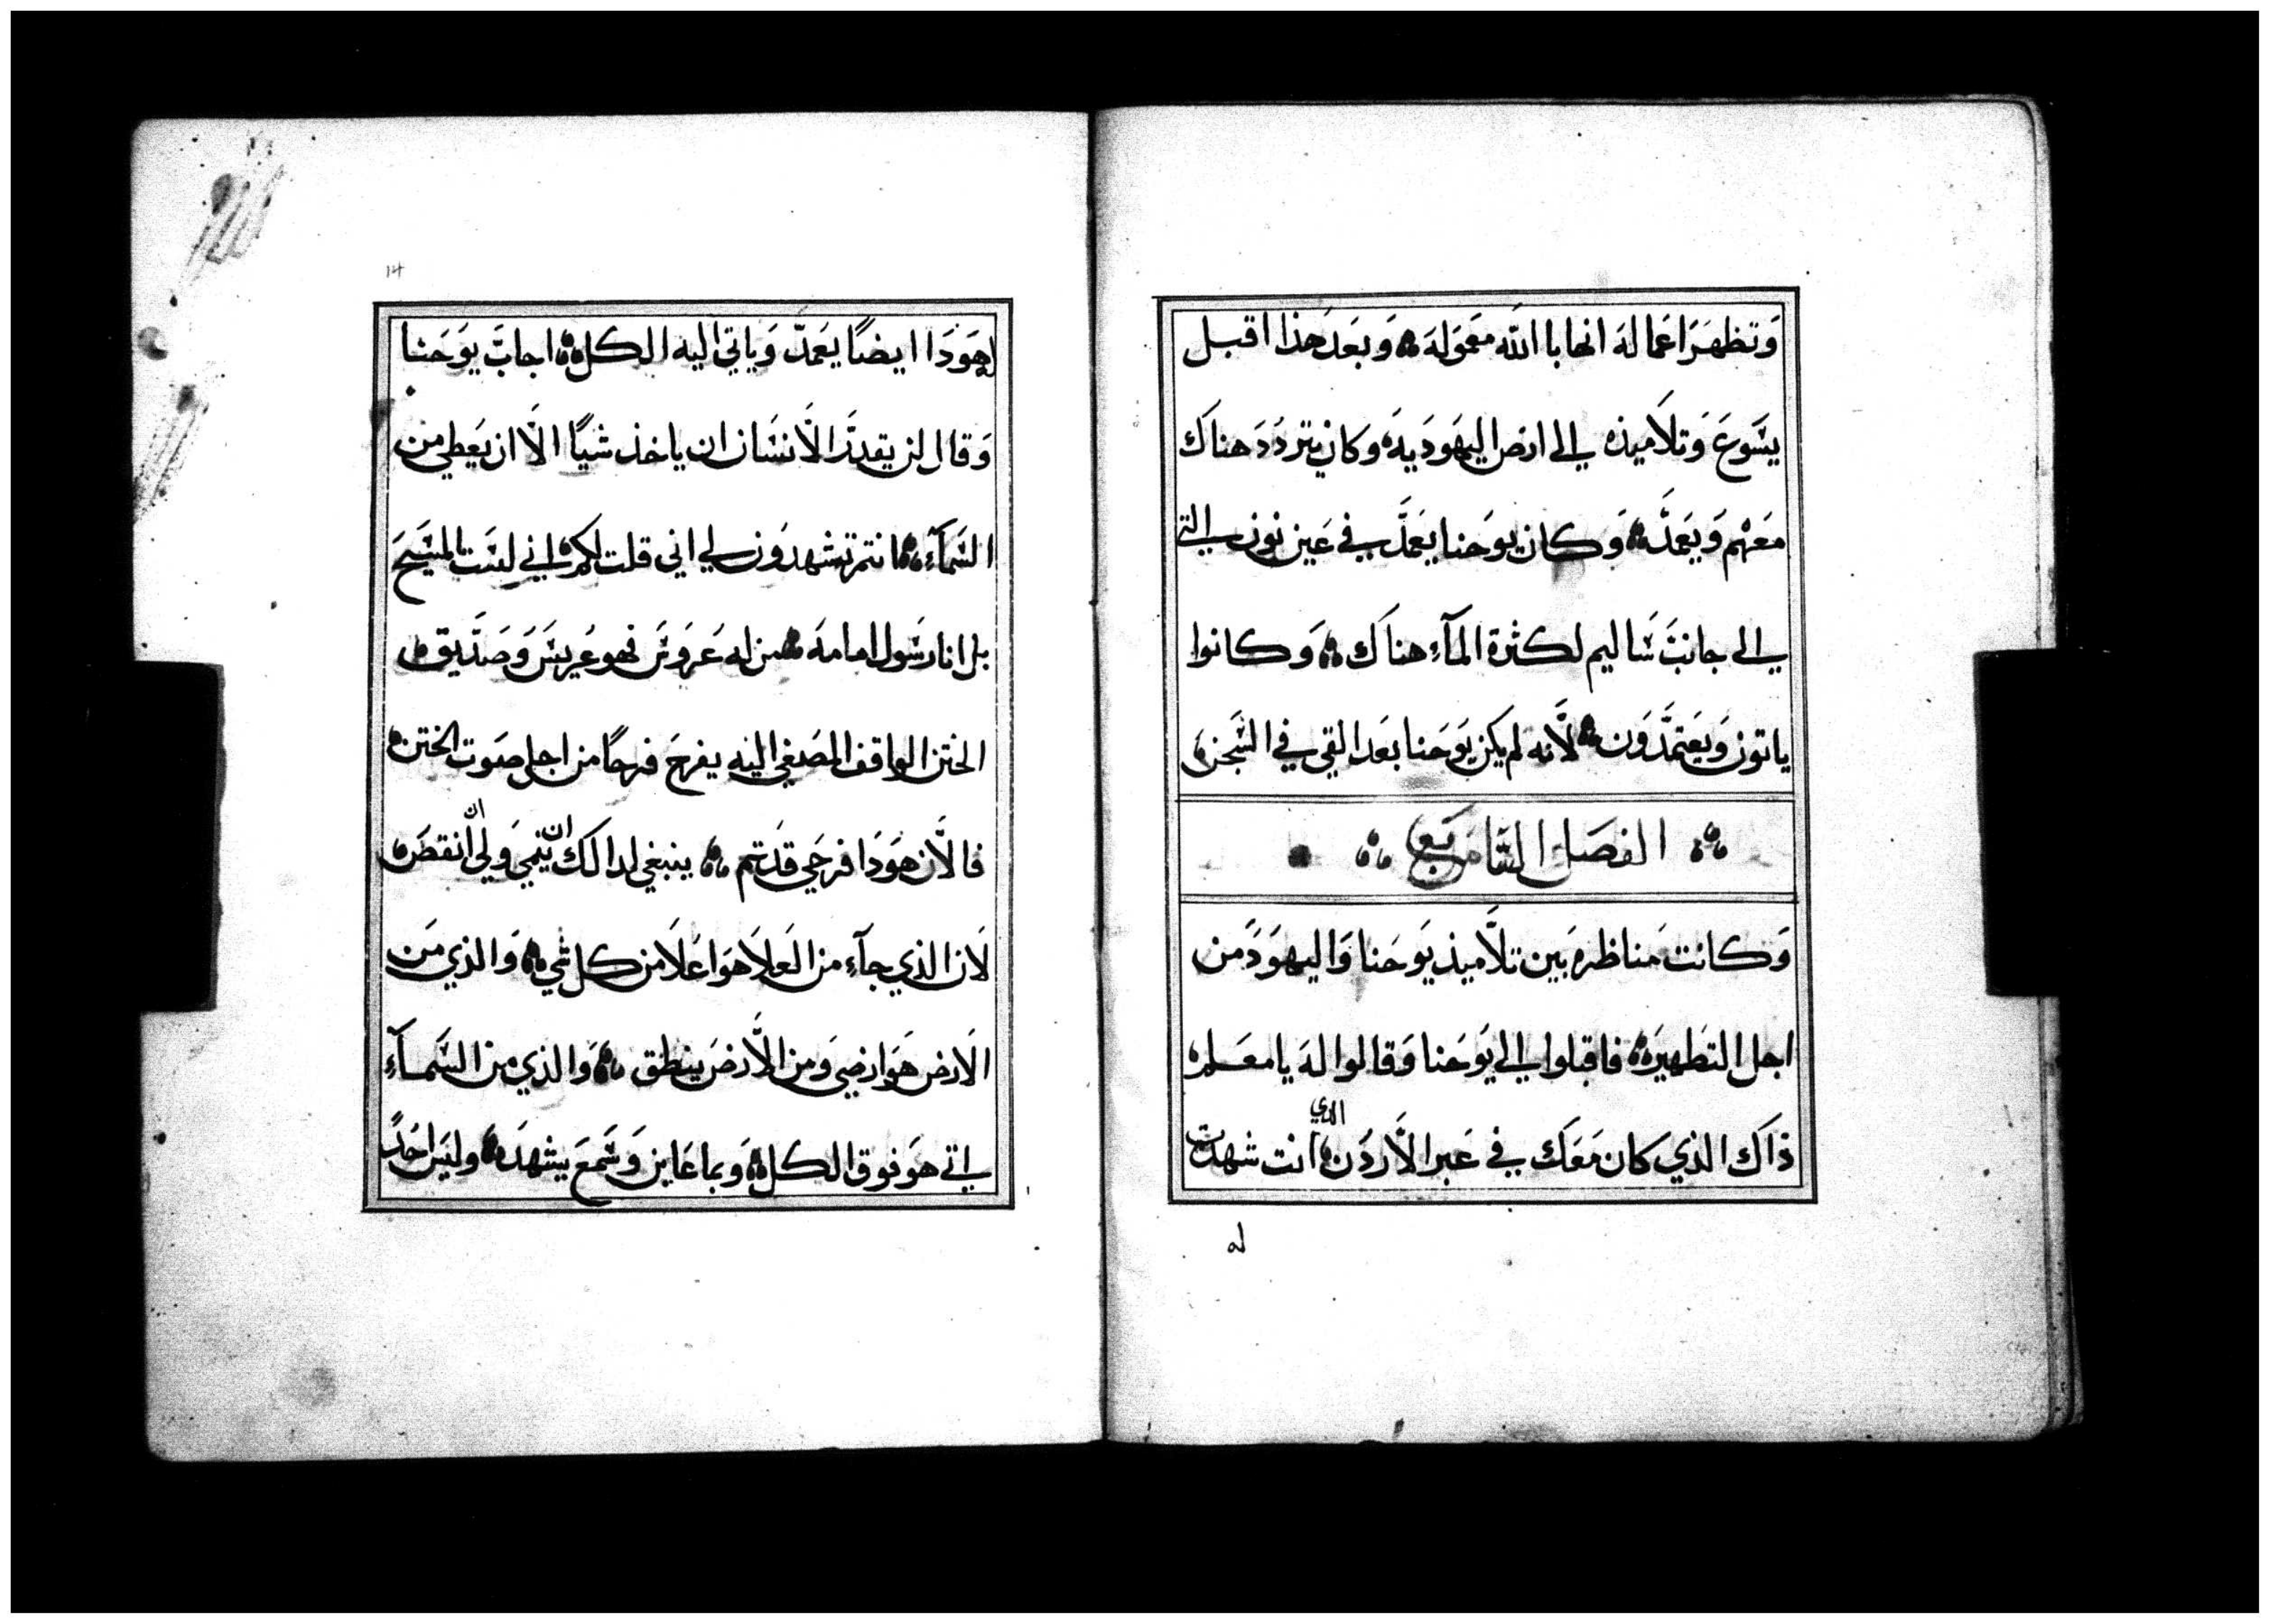 وَتظهَرَاعَمالهَ انها باالله معَمَولهَ وَبَعدَ هَذا اقبل
يسَوعَ وَتلاَميذه الى ارضِ اليهَودَيهَ وكان يترددَ هناكَ
معَهْم وَيعَمدَّ وَكان يوَحَنا يعَمدَّ في عَين نون التي
الى جانبَ سَاليم لكثرة المآءِ هناكَ وَكانوا
ياتون وَيعَتمَّدَون لأنه لم يكن يَوَحَنا بعَد القي في السَجن
الفصَل السَابَع
وَكانت مَناظرهَ بَين تلاَّميذ يَوحَنا وَاليهوَدَ من
اجل التَطهير فاقبلوا الى يوَحَنا وَقالوا لهَ يا معَلم
ذاَكَ الذي كان مَعَكَ في عَبر الأَردَن الدي انت شهدت
له
14
لهَ هوَدَا ايضاً يعَمدَّ وَياتي اليه الكل اجابَ يوَحَنا
وَقال لن يقدرَ الأَنسَان ان ياخذ شياً الاَّ ان يعَطي من
السَمآءِ انتم تشهدوَن لي اني قلت لكم اني لسَت المسَيحَ
بل انا رسَول امامهَ من له عَروَسَ فهو عَريسَ وَصَدَّيق
الختن الواقف المصَغي اليه يفرحَ فرحاً من اجل صَوت الختن
فالأن هَوَدَا فرحَي قدَتم ينبغي لدالكَ ان ينميَ وَلي ان انقصَ
لاَن الذي جآءِ من العَلاَ هَوَاعَلاَ من كل شي وَالذي مَن
الاَرض هَوَ ارضي وَمن الأَرضَ ينطق وَالذي من السَمآءِ
ياتي هَوَ فوق الكل وَبما عَاين وَسَمعَ يشهدَ وَليسَ احَدً